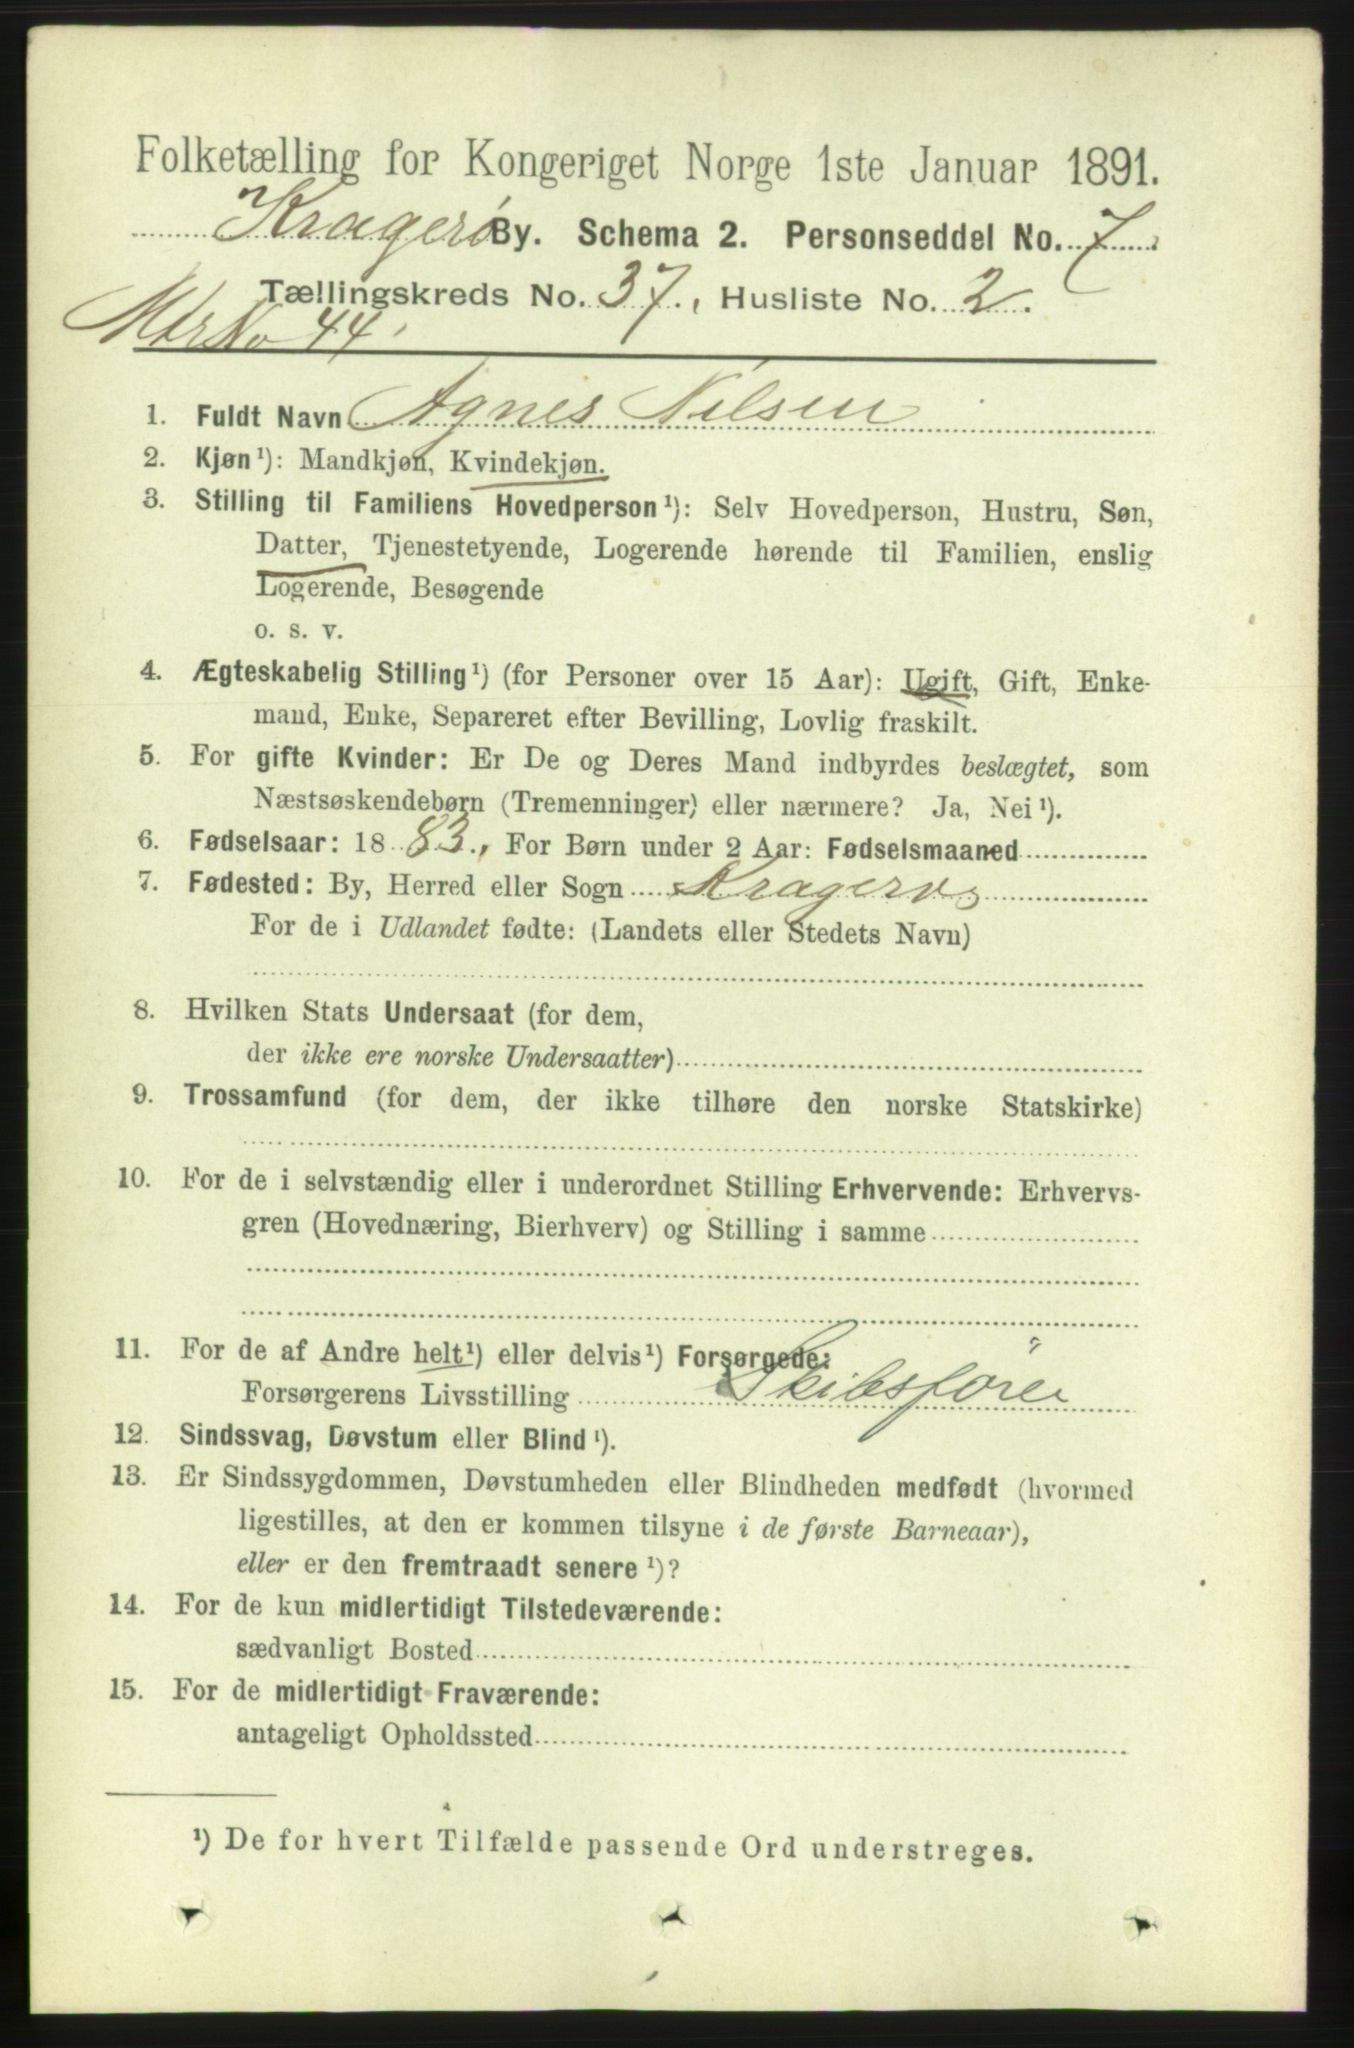 Folketælling for Kongeriget Norge 1ste Januar 1891.
Kragerø By. Schema 2. Personseddel No. 7.
Tællingskreds No. 37., Husliste No. 2.
No 44
1. Fuldt Navn Agnes Nilsen
2. Kjøn¹): Mandkjøn, Kvindekjøn.
3. Stilling til Familiens Hovedperson¹): Selv Hovedperson, Hustru, Søn,
Datter, Tjenestetyende, Logerende hørende til Familien, enslig
Logerende, Besøgende
o. s. v.
4. Ægteskabelig Stilling¹) (for Personer over 15 Aar): Ugift, Gift, Enke-
mand, Enke, Separeret efter Bevilling, Lovlig fraskilt.
5. For gifte Kvinder: Er De og Deres Mand indbyrdes beslægtet, som
Næstsøskendebørn (Tremenninger) eller nærmere? Ja, Nei¹).
6. Fødselsaar: 1883., For Børn under 2 Aar: Fødselsmaaned
7. Fødested: By, Herred eller Sogn Kragerø
For de i Udlandet fødte: (Landets eller Stedets Navn)
8. Hvilken Stats Undersaat (for dem,
der ikke ere norske Undersaatter)
9. Trossamfund (for dem, der ikke tilhøre den norske Statskirke)
10. For de i selvstændig eller i underordnet Stilling Erhvervende: Erhvervs-
gren (Hovednæring, Bierhverv) og Stilling i samme
11. For de af Andre helt¹) eller delvis¹) Forsørgede:
Forsørgerens Livsstilling Skibsförer
12. Sindssvag, Døvstum eller Blind¹).
13. Er Sindssygdommen, Døvstumheden eller Blindheden medfødt (hvormed
ligestilles, at den er kommen tilsyne i de første Barneaar),
eller er den fremtraadt senere¹)?
14. For de kun midlertidigt Tilstedeværende:
sædvanligt Bosted
15. For de midlertidigt Fraværende:
antageligt Opholdssted
¹) De for hvert Tilfælde passende Ord understreges.